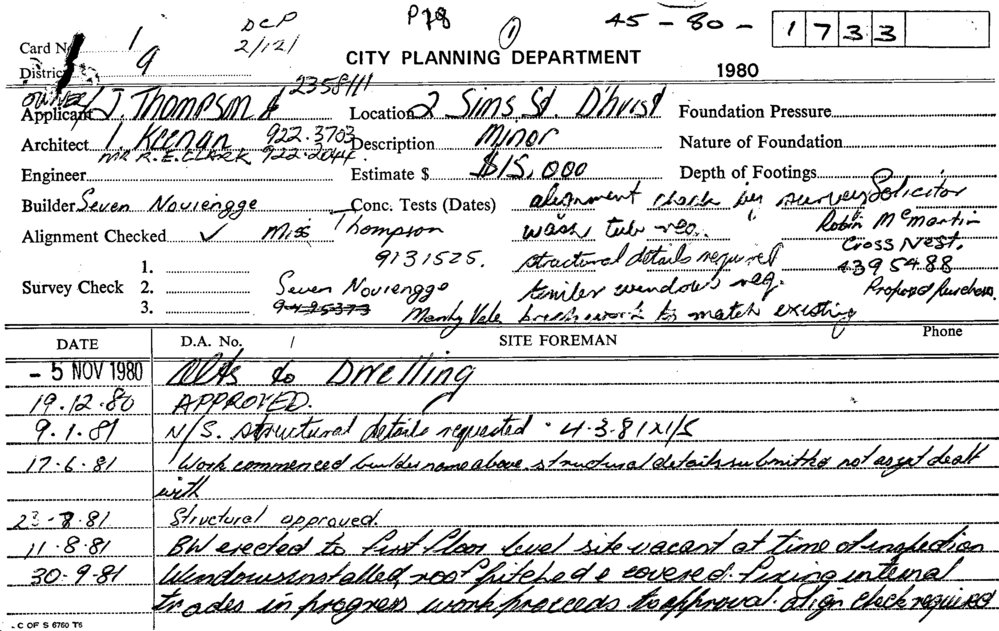 DCP
P78
1
45-80-1733
Card No. 1
2/12/
CITY PLANNING DEPARTMENT
District 9
1980
OWNER 2358111
Applicant J. Thompson &
Location 2 Sims St. D'hurst
Foundation Pressure
Architect I. Keenan 922.3703
Description Minor
Nature of Foundation
MR R.E. CLARK 922.2044.
Engineer
Estimate $ $15,000
Depth of Footings
Builder Seven Noviengge
Conc. Tests (Dates) alignment check by survey Solicitor
Alignment Checked ✓ Miss Thompson
wash tub req. "
Robin McMartin
9131525.
structural details required
Cross Nest.
1.
4395488
Survey Check 2. Seven Noviengge
timber windows req.
Proposed Purchasers
3. 9495373 Manly Vale
brickwork to match existing
DATE
D.A. No. /
SITE FOREMAN
Phone
- 5 NOV 1980 Alts to Dwelling
19.12.80 APPROVED.
9.1.81 N/S. structural details requested . 4.3.81 N/S
17.6.81 Work commenced builder name above. structural details submitted not as yet dealt
with
23-7-81 Structural approved.
11.8.81 BW erected to first floor level site vacant at time of inspection
30.9.81 Windows installed, roof pitched & covered. fixing internal
trades in progress work proceeds to approval. align check required
C OF S 6760 T6